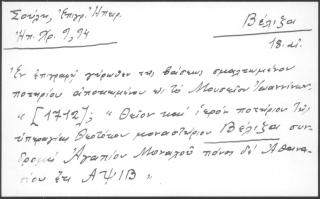 Σούλη, Ἐπιγρ. Ἠπειρ.
Ἠπ. Χρ. 9, 94
Βέλιξα
18. αἰ.
Ἐν ἐπιγραφῇ γύρωθεν τῆς βάσεως σμαλτωμένου
ποτηρίου ἀποκειμένου εἰς τὸ Μουσεῖον Ἰωαννίνων.
"[1712]; "Θεῖον καὶ ἱερὸν ποτήριον τῆς
ὑπεραγίας Θεοτόκου μοναστήριον Βέλιξα συν-
δρομῇ Ἀγαπίου Μοναχοῦ πόνος δὲ Ἀθανα-
σίου ἔτει ΑΨΙΒ"